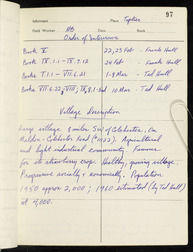 97
Informant Place Tiptree
Field Worker HB
Order of Interview
Book V 22, 23 Feb - Frank Hall
Book IX.1.1 - IX.9.12 24 Feb - Frank Hall
Books I.1.1 - VII.6.21 1-8 Mar - Ted Hall
Books VII.6.22; VIII; IX.9.1-End 10 Mar - Ted Hall
Village Description
Large village 8 miles SW of Colchester, on
Maldon - Colchester Road (B1022). Agricultural
and light industrial community. Famous
for its strawberry crop. Healthy, growing village.
Progressive socially & economically. Population
1950 approx 2,000; 1960 estimated (by Ted Hall)
at 4,000.